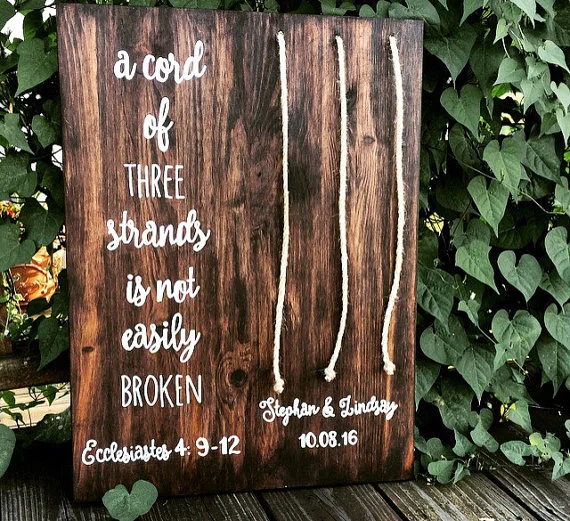 a cord
of
THREE
strands
is not
easily
BROKEN
Ecclesiastes 4: 9-12
Stephan & Lindsay
10.08.16